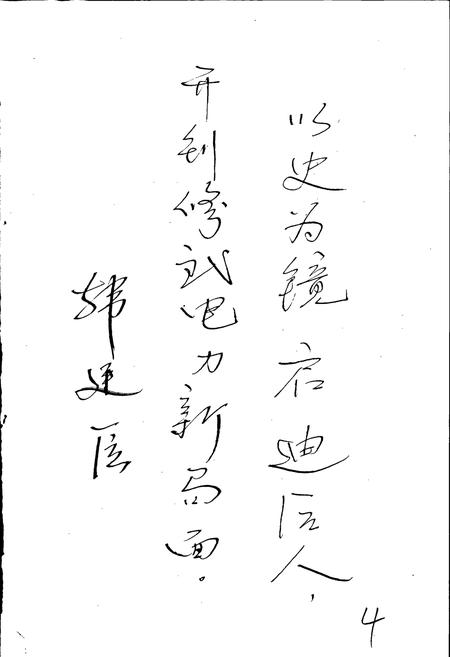 以史为镜启迪后人，
开创修武电力新局面。
韩
4